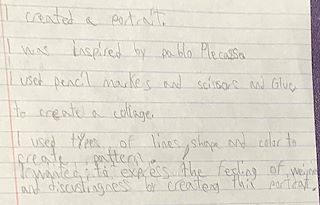 I created a portrait.
I was inspired by pablo Plecasso
I used pencil markes and scissors and Glue
to create a collage.
I used types of lines, shape and color to
create pattern.
I wanted to express the feeling of
and discustingness by createing this portrait.